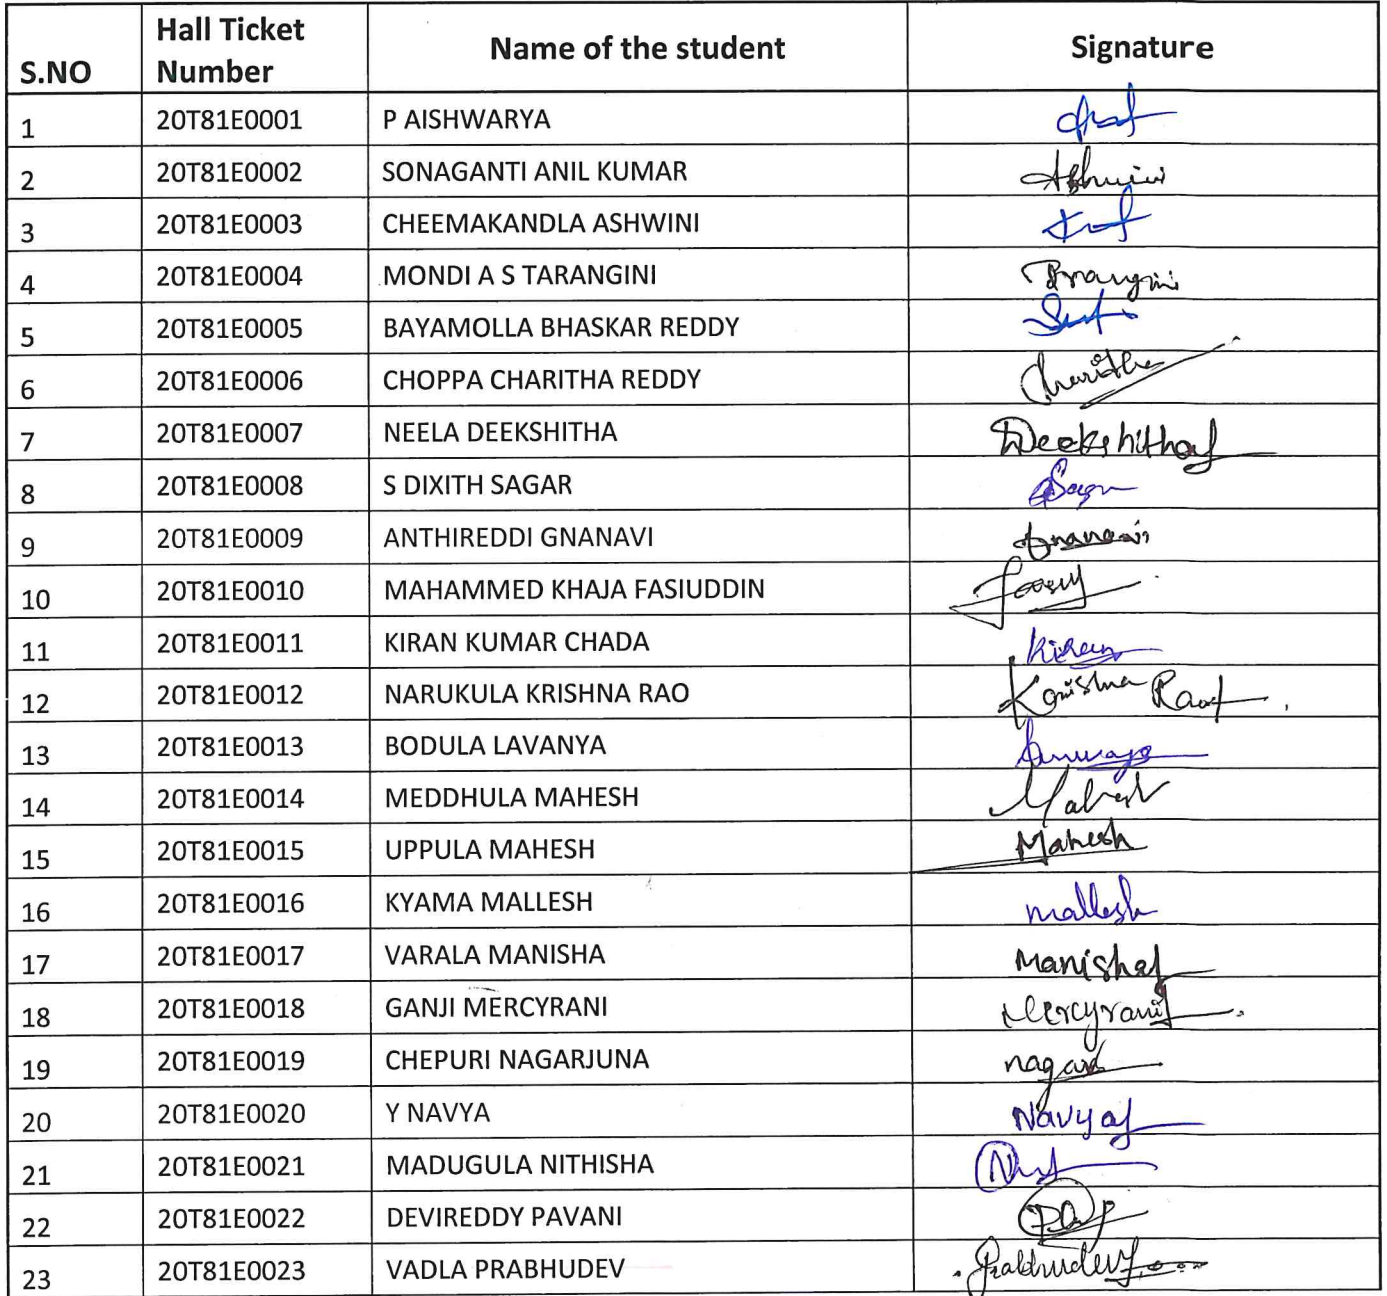 S.NO Hall Ticket Number Name of the student Signature
1 20T81E0001 P AISHWARYA
2 20T81E0002 SONAGANTI ANIL KUMAR Ashwini
3 20T81E0003 CHEEMAKANDLA ASHWINI
4 20T81E0004 MONDI A S TARANGINI
5 20T81E0005 BAYAMOLLA BHASKAR REDDY
6 20T81E0006 CHOPPA CHARITHA REDDY Charitha
7 20T81E0007 NEELA DEEKSHITHA Deekshitha
8 20T81E0008 S DIXITH SAGAR Sagar
9 20T81E0009 ANTHIREDDI GNANAVI
10 20T81E0010 MAHAMMED KHAJA FASIUDDIN
11 20T81E0011 KIRAN KUMAR CHADA Kiran
12 20T81E0012 NARUKULA KRISHNA RAO Krishna Rao
13 20T81E0013 BODULA LAVANYA
14 20T81E0014 MEDDHULA MAHESH Mahesh
15 20T81E0015 UPPULA MAHESH Mahesh
16 20T81E0016 KYAMA MALLESH mallesh
17 20T81E0017 VARALA MANISHA Manisha
18 20T81E0018 GANJI MERCYRANI Mercyrani
19 20T81E0019 CHEPURI NAGARJUNA
20 20T81E0020 Y NAVYA Navya
21 20T81E0021 MADUGULA NITHISHA
22 20T81E0022 DEVIREDDY PAVANI
23 20T81E0023 VADLA PRABHUDEV Prabhudev